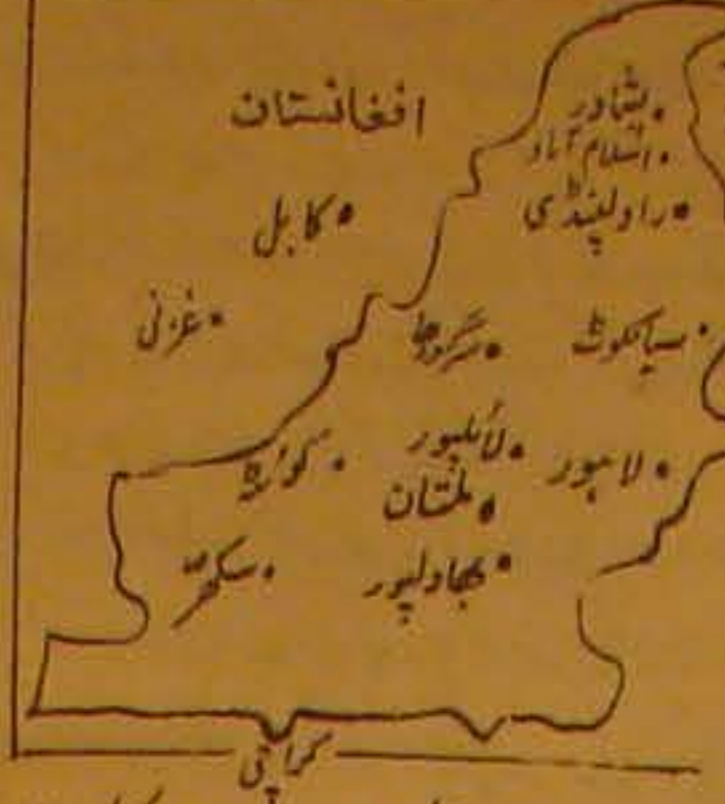 افغانستان
پشاور
اسلام آباد
راولپنڈی
کابل
غزنی
سرگودھا
سیالکوٹ
لائلپور
لاہور
کوئٹہ
ملتان
سکھر
بھاولپور
کراچی